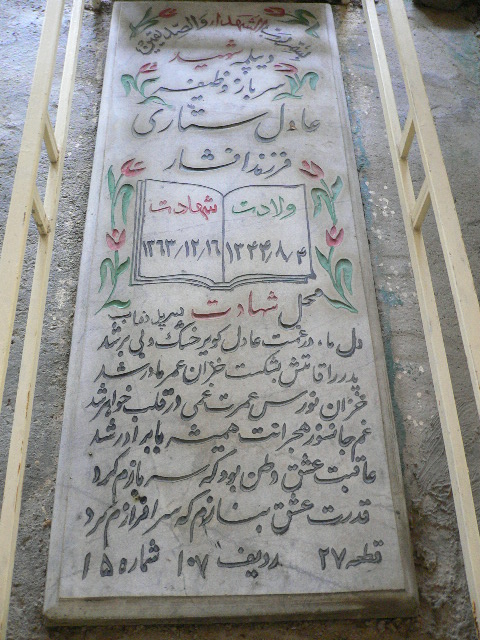 بامضرب الشهداء والصدیقین
دیپلمه شهید
سرباز وظیفه
عادل ستاری
فرزند افشار
ولادت شهادت
۱۳۴۴٫۸٫۳ ۱۳۶۳٫۱۲٫۱۶
محل شهادت سرپل ذهاب
دل ما، در غمت عادل کویر خشک و بی بر شد
پدر را قامتش بشکست خزان عمر مادر شد
خزان نورس عمرت غمی در قلب خواهر شد
غم جانسوز هجرانت همیشه با برادر شد
عاقبت عشق وطن بود که سر بازم کرد
قدرت عشق بنازم که سرافرازم کرد
قطعه ۲۷ ردیف ۱۰۷ شماره ۱۵